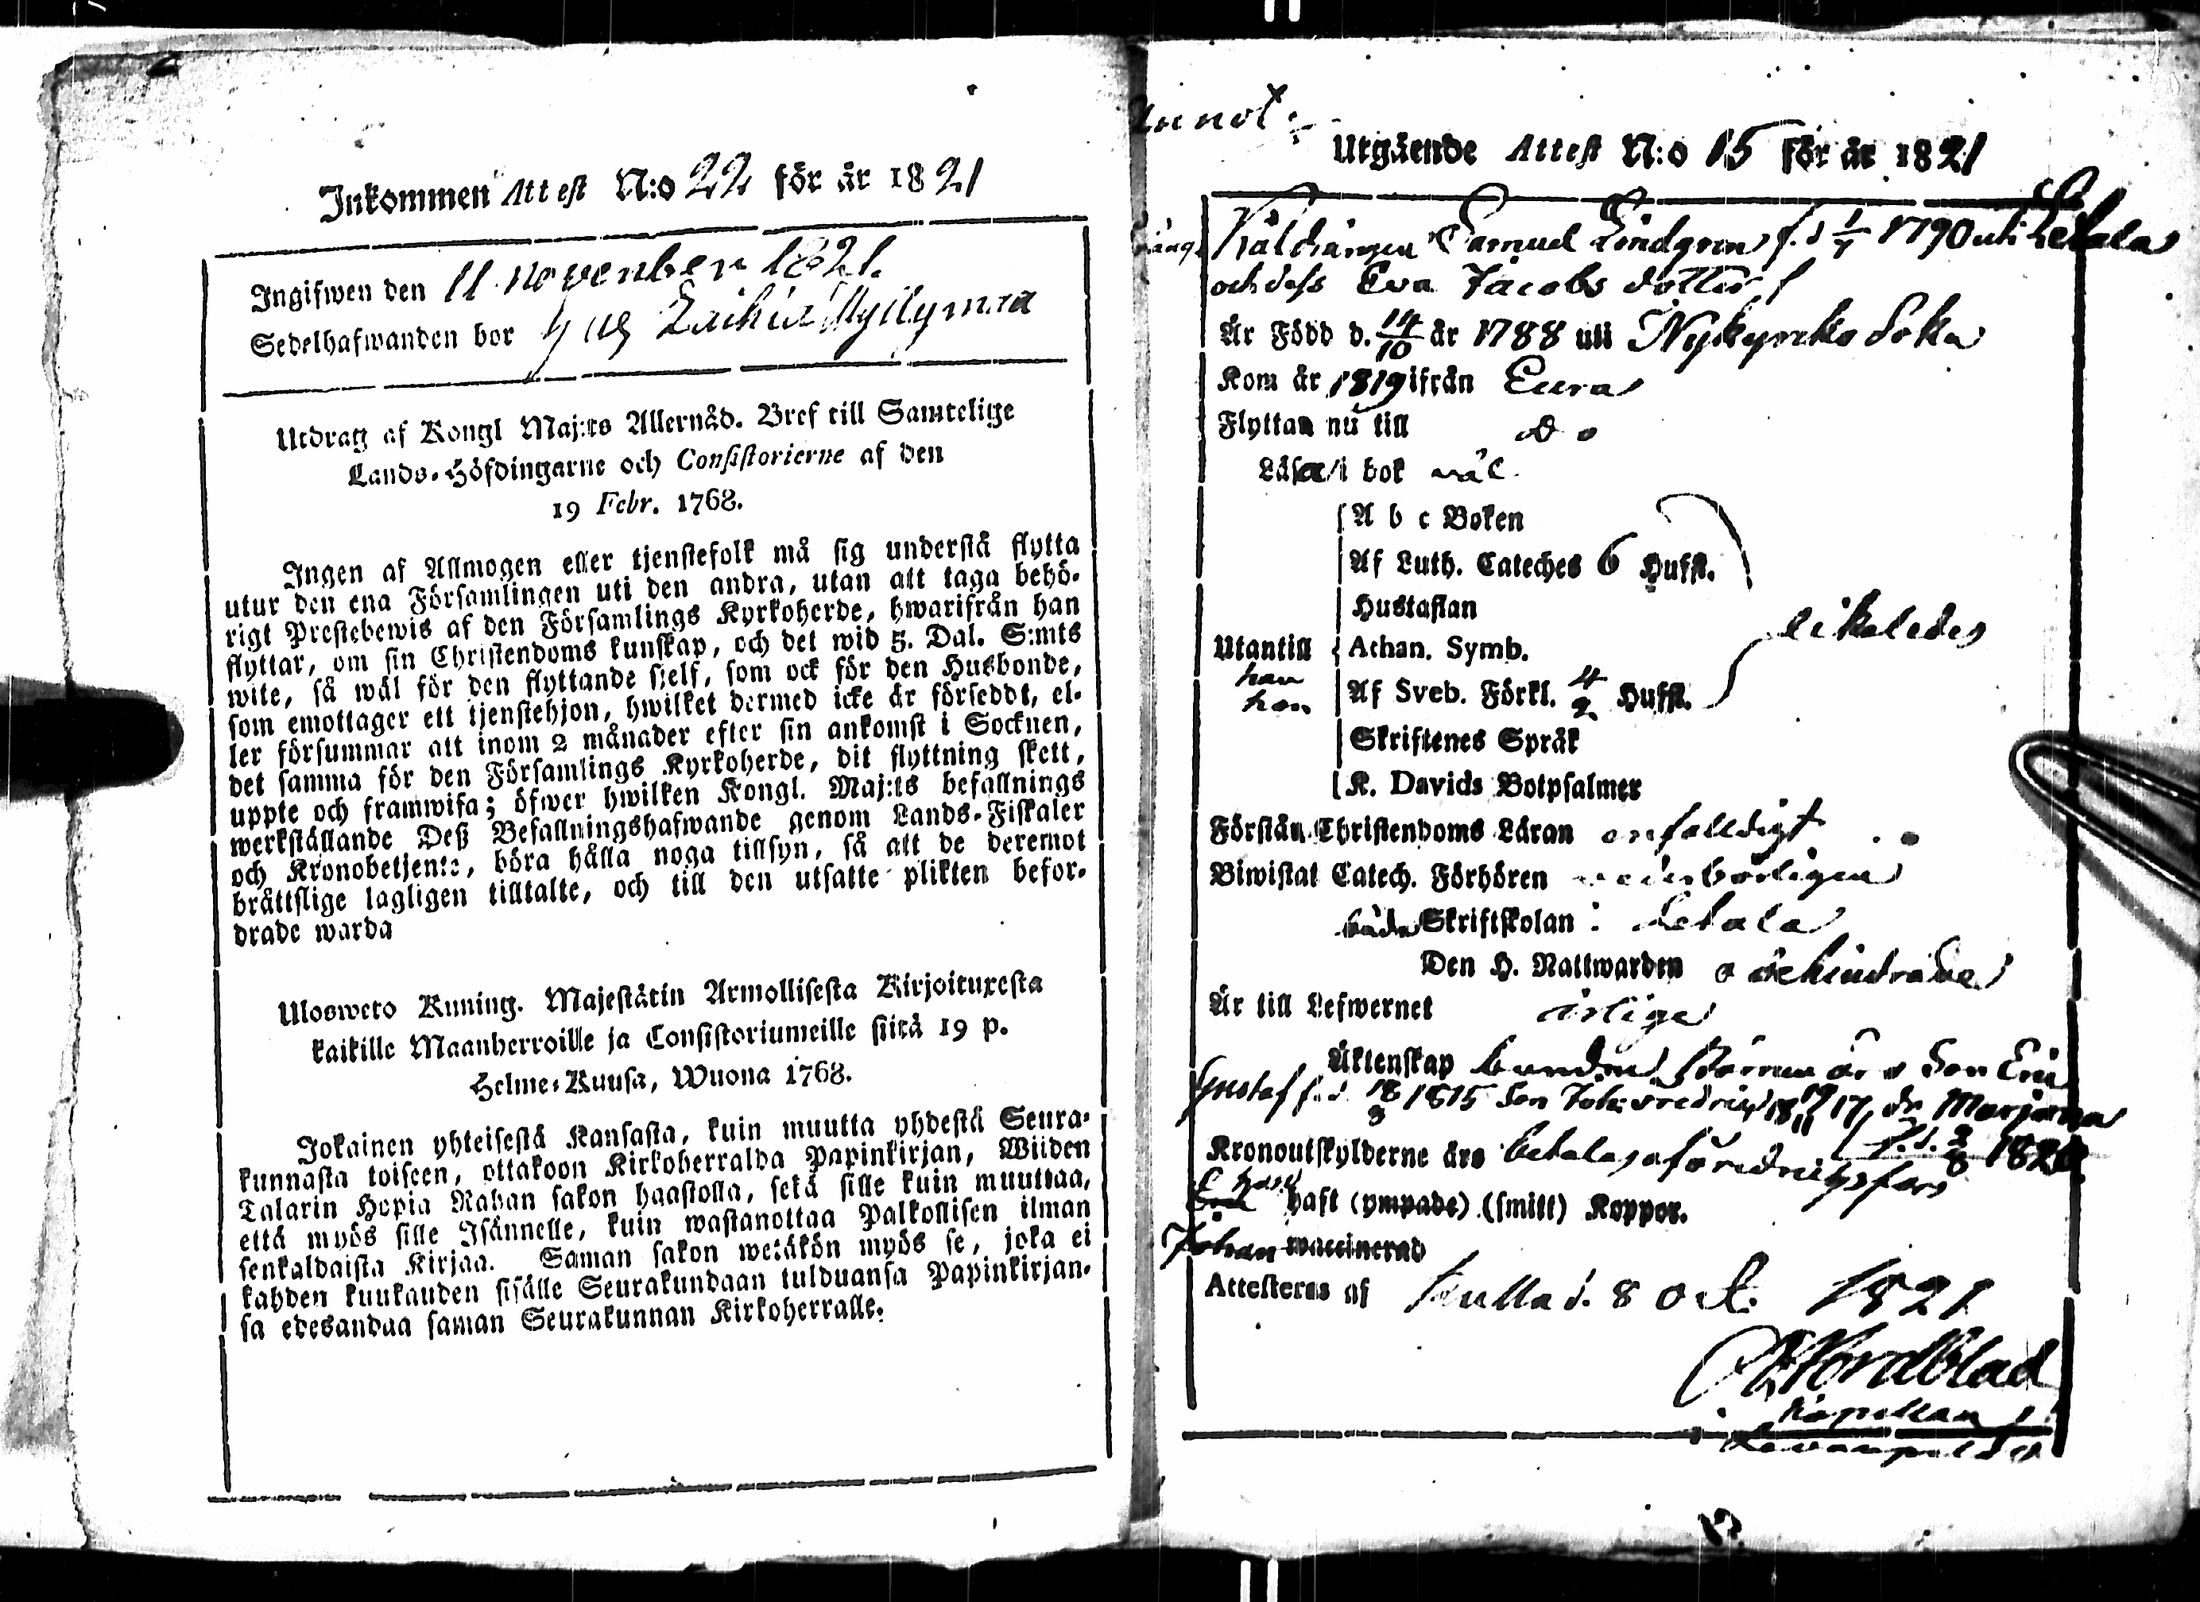 Inkommen Attest N:o 22 för år 1821
Ingifwen den 11 november 1821.
Sedelhafwanden bor
Utdrag af Kongl Maj:ts Allernåd. Bref till Samtelige
Lands-Höfdingarne och Consistorierne af den
19 Febr. 1768.
Ingen af Allmogen eller tjenstefolk må sig understå flytta
utur den ena Församlingen uti den andra, utan att taga behö-
rigt Prestebewis af den Församlings Kyrkoherde, hwarifrån han
flyttar, om sin Christendoms kunskap, och det wid 5. Dal. S:mts
wite, så wäl för den flyttande sjelf, som ock för den Husbonde,
som emottager ett tjenstehjon, hwilket dermed icke är förseddt, el-
ler försummar att inom 2 månader efter sin ankomst i Socknen,
det samma för den Församlings Kyrkoherde, dit flyttning skett,
uppte och framwisa; öfwer hwilken Kongl. Maj:ts befallnings
werkställande Deß Befallningshafwande genom Lands-Fiskaler
och Kronobetjente, böra hålla noga tillsyn, så att de deremot
bråttslige lagligen tilltalte, och till den utsatte plikten befor-
drade warda
Ulosweto Kuning. Majestätin Armollisesta Kirjoituxesta
kaikille Maanherroille ja Consistoriumeille siitä 19 p.
Helme-Kuusa, Wuona 1768.
Jokainen yhteisestä Kansasta, kuin muutta yhdestä Seura-
kunnasta toiseen, ottakoon Kirkoherralda Papinkirjan, Wiiden
Talarin Hopia Rahan sakon haastolla, sekä sille kuin muuttaa,
että myös sille Isännelle, kuin wastanottaa Palkollisen ilman
senkaldaista Kirjaa. Saman sakon wetäkön myös se, joka ei
kahden kuukauden sisälle Seurakundaan tulduansa Papinkirjan-
sa edesandaa saman Seurakunnan Kirkoherralle.
Utgående Attest N:o 15 för år 1821
Samuel Lindgren f. d 1/7 1790 uti Letala
och dess Eva Jacobs dotter
Är Född d. 14/10 år 1788 uti Nykyrko Sokn
Kom år 1819 ifrån Eura
Flyttar nu till do
Läsa i bok wäl
A b c Boken
Af Luth. Cateches 6 Hufst.
Hustaflan
Utantill Athan. Symb. likaledes
han
hon Af Sveb. Förkl. 4/2 Hufst.
Skriftenes Språk
K. Davids Botpsalmer
Förstån Christendoms Läran enfalldigt
Biwistat Catech. Förhören wederbörligen
både Skriftskolan i Letala
Den H. Nattwarden obehindrade
Är till Lefwernet ärlige
Äktenskap bundne son Eric
Gustaf f. d. 18/3 1815 son Joh: Fredric 18 19/11 17, dr Marjana
f. d. 2/8 1820
Kronoutskylderne äro betalas
haft (ympade) (smitt) Koppor.
Johan waccinerad
Attesteras af Kulla d. 8 Oct. 1821
Nordblad
Kapellan